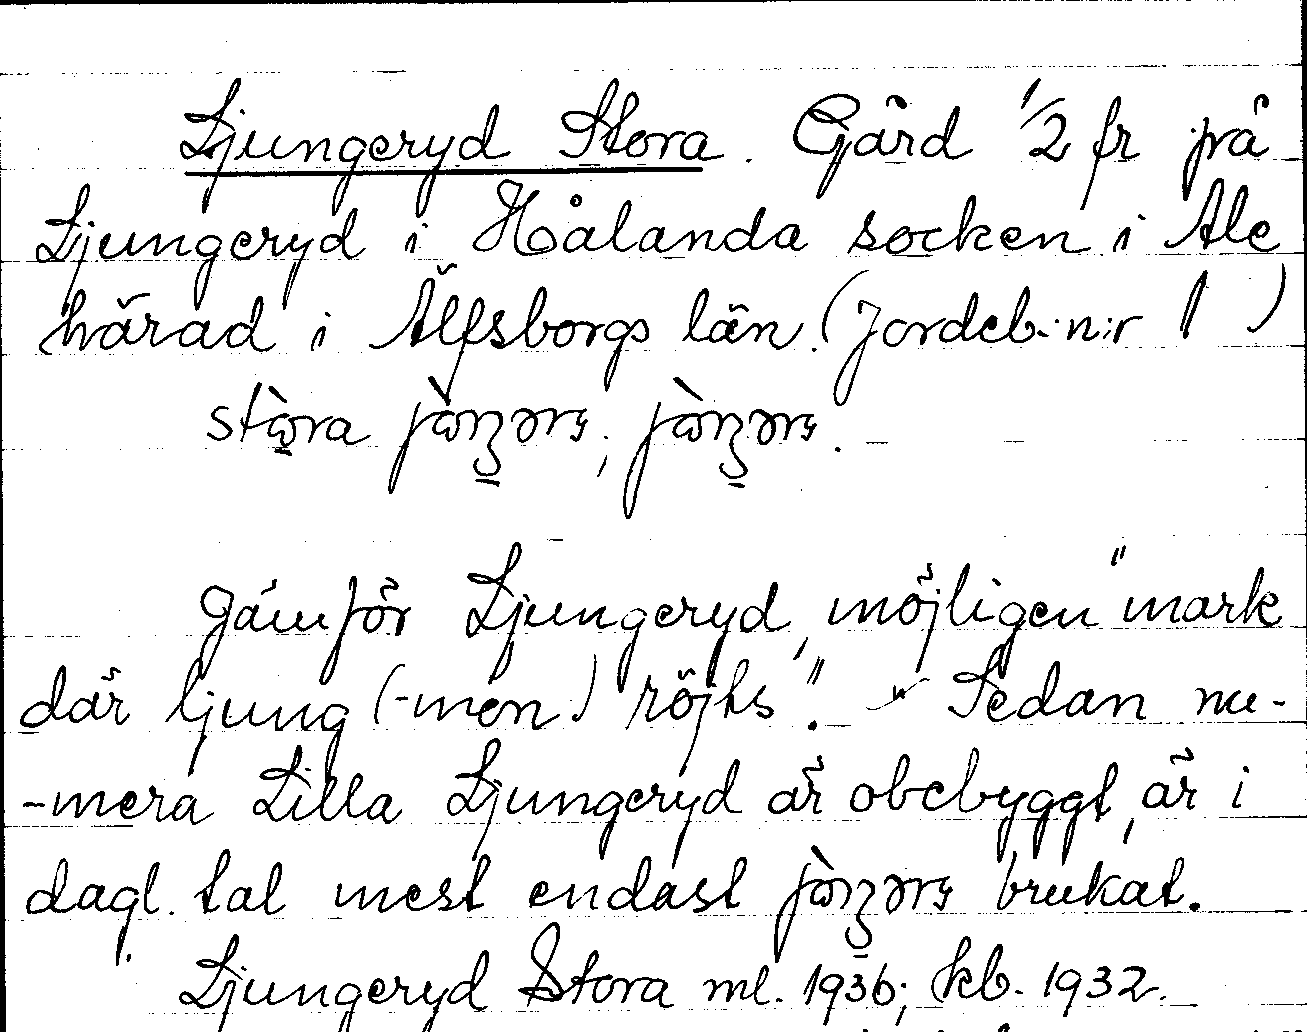 Ljungeryd Stora. Gård 1/2 fr på
Ljungeryd i Hålanda socken i Ale
härad i Älfsborgs län. (Jordeb. n:r 1 )
stora
Jämför Ljungeryd, möjligen "mark
där ljung (-men) röjts". - Sedan nu-
-mera Lilla Ljungeryd är obebyggt, är i
dagl. tal mest endast brukat.
Ljungeryd Stora ml. 1936; kb. 1932.